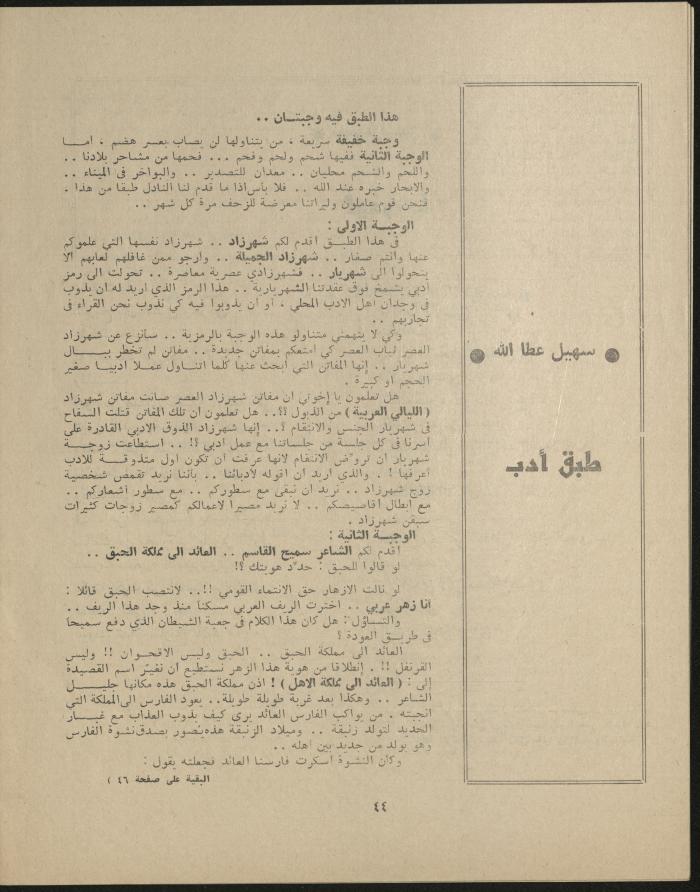 سهيل عطا الله
طبق أدب
هذا الطبق فيه وجبتـــان ..
وجبة خفيفة سريعة ، من يتناولها لن يصاب بعسر هضم ، امـــا
الوجبة الثانية ففيها شحم ولحم وفحم ... فحمها من مشاحر بلادنا ..
واللحم والشحم محليان .. معدان للتصدير .. والبواخر في الميناء ..
والابحار خبره عند الله .. فلا بأس اذا ما قدم لنا النادل طبقا من هذا ،
فنحن قوم عاملون وليراتنا معرضة للزحف مرة كل شهر ..
الوجبــة الاولى :
في هذا الطبــق اقدم لكم شهرزاد .. شهرزاد نفسها التي علموكم
عنها وانتم صغار .. شهرزاد الجميلة .. وارجو ممن غافلهم لعابهم الا
يتحولوا الى شهريار .. فشهرزادي عصرية معاصرة .. تحولت الى رمز
ادبي يشمخ فوق عقدتنا الشهريارية .. هذا الرمز الذي اريد له ان يذوب
في وجدان اهل الادب المحلي ، او ان يذوبوا فيه كي نذوب نحن القراء في
تجاربهم ..
وكي لا يتهمني متناولو هذه الوجبة بالرمزية .. سأنزع عن شهرزاد
العصر ثياب العصر كي امتعكم بمفاتن جديدة .. مفاتن لم تخطر ببـــال
شهريار .. إنها المفاتن التي ابحث عنها كلما اتنـاول عمـلا ادبيـا صغير
الحجم او كبيرة .
هل تعلمون يا إخوتي ان مفاتن شهرزاد العصر صانت مفاتن شهرزاد
( الليالي العربية ) من الذبول ؟؟.. هل تعلمون ان تلك المفاتن قتلت السفاح
في شهريار الجنس والانتقام ؟.. إنها شهرزاد الذوق الادبي القادرة على
اسرنا في كل جلسة من جلساتنا مع عمل ادبي ؟! .. استطاعت زوجـــة
شهريار ان تروّض الانتقام لانها عرفت ان تكون اول متذوقــة للادب
اعرفها ! . والذي اريد ان اقوله لادبائنا .. باننا نريد تقمص شخصية
زوج شهرزاد .. نريد ان نبقى مع سطوركم .. مع سطور اشعاركم ..
مع ابطال اقاصيصكم .. لا نريد مصيرا لاعمالكم كمصير زوجات كثيرات
سبقن شهرزاد .
الوجبــة الثانية :
اقدم لكم الشاعر سميح القاسم .. العائد الى مملكة الحبق ..
لو قالوا للحبق : حدّد هويتك ؟!
لو نالت الازهار حق الانتماء القومي !!.. لانتصب الحبق قائلا :
انا زهر عربي .. اخترت الريف العربي مسكنا منذ وجد هذا الريف ..
والتساؤل : هل كان هذا الكلام في جعبة الشيطان الذي دفع سميحا
في طريــق العودة ؟
العائد الى مملكة الحبق .. الحبق وليس الاقحــوان !! وليس
القرنفل !! . إنطلاقا من هوية هذا الزهر نستطيع ان نغيّر اسم القصيدة
إلى : ( العائد الى مملكة الاهل ) ! اذن مملكة الحبق هذه مكانها جليـــل
الشاعر .. وهكذا بعد غربة طويلة طويلة.. يعود الفارس الى المملكة التي
انجبته . من يواكب الفارس العائد يرى كيف يذوب العذاب مع غبـــار
الحديد لتولد زنبقة .. وميلاد الزنبقة هذه يُصور بصدق نشوة الفارس
وهو يولد من جديد بين اهله ..
وكأن النشوة اسكرت فارسنا العائد فجعلته يقول :
البقية على صفحة ٤٦ )
٤٤